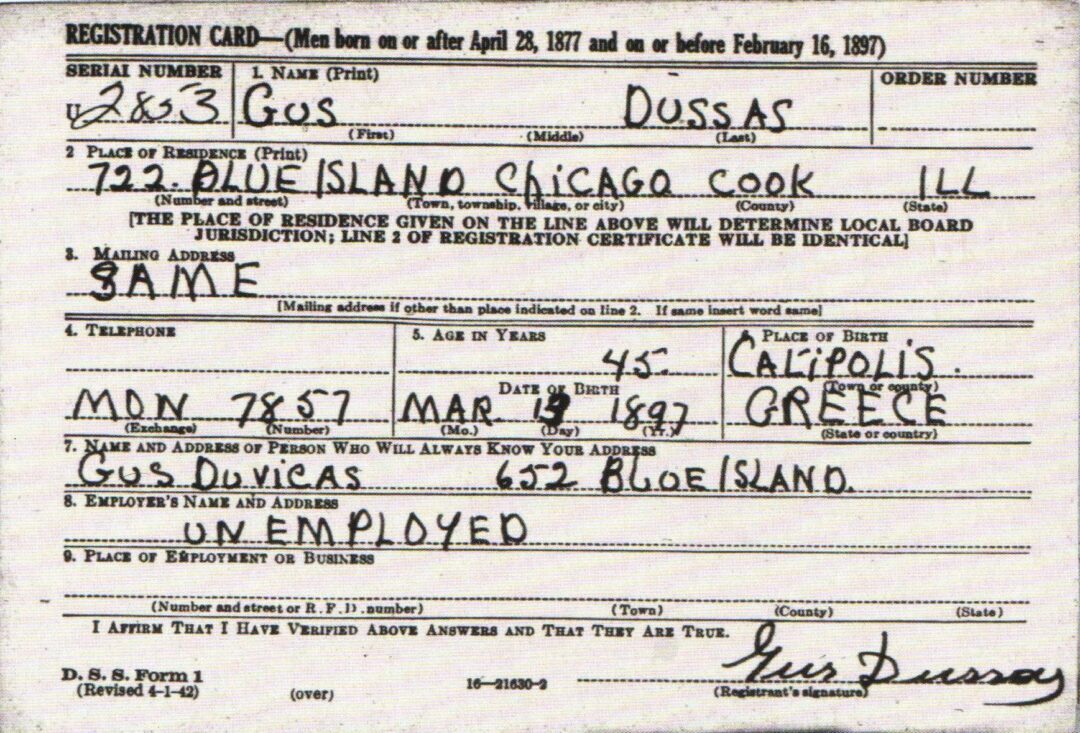 REGISTRATION CARD—(Men born on or after April 28, 1877 and on or before February 16, 1897)
SERIAL NUMBER 1. NAME (Print) ORDER NUMBER
U 2853 GUS DUSSAS
(First) (Middle) (Last)
2 PLACE OF RESIDENCE (Print)
722. BLUE ISLAND CHiCAGO COOK ILL
(Number and street) (Town, township, village, or city) (County) (State)
[THE PLACE OF RESIDENCE GIVEN ON THE LINE ABOVE WILL DETERMINE LOCAL BOARD
JURISDICTION; LINE 2 OF REGISTRATION CERTIFICATE WILL BE IDENTICAL]
3. MAILING ADDRESS
SAME
[Mailing address if other than place indicated on line 2. If same insert word same]
4. TELEPHONE 5. AGE IN YEARS PLACE OF BIRTH
45. CALiPOLiS.
DATE OF BIRTH (Town or county)
MON 7857 MAR 1897 GREECE
(Exchange) (Number) (Mo.) (Day) (Yr.) (State or country)
7. NAME AND ADDRESS OF PERSON WHO WILL ALWAYS KNOW YOUR ADDRESS
GUS DUViCAS 652 BLUE ISLAND.
8. EMPLOYER'S NAME AND ADDRESS
UNEMPLOYED
9. PLACE OF EMPLOYMENT OR BUSINESS
(Number and street or R. F. D. number) (Town) (County) (State)
I AFFIRM THAT I HAVE VERIFIED ABOVE ANSWERS AND THAT THEY ARE TRUE.
Gus Dussas
D. S. S. Form 1
(Revised 4-1-42) (over) 16—21630-2 (Registrant's signature)